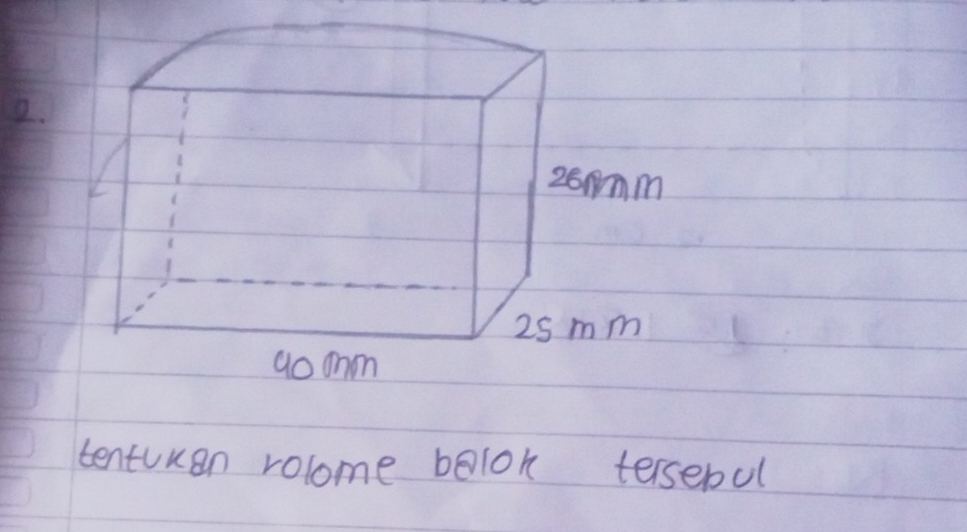 2.
26mm
25 mm
90mm
tentukan volome balok tersebut